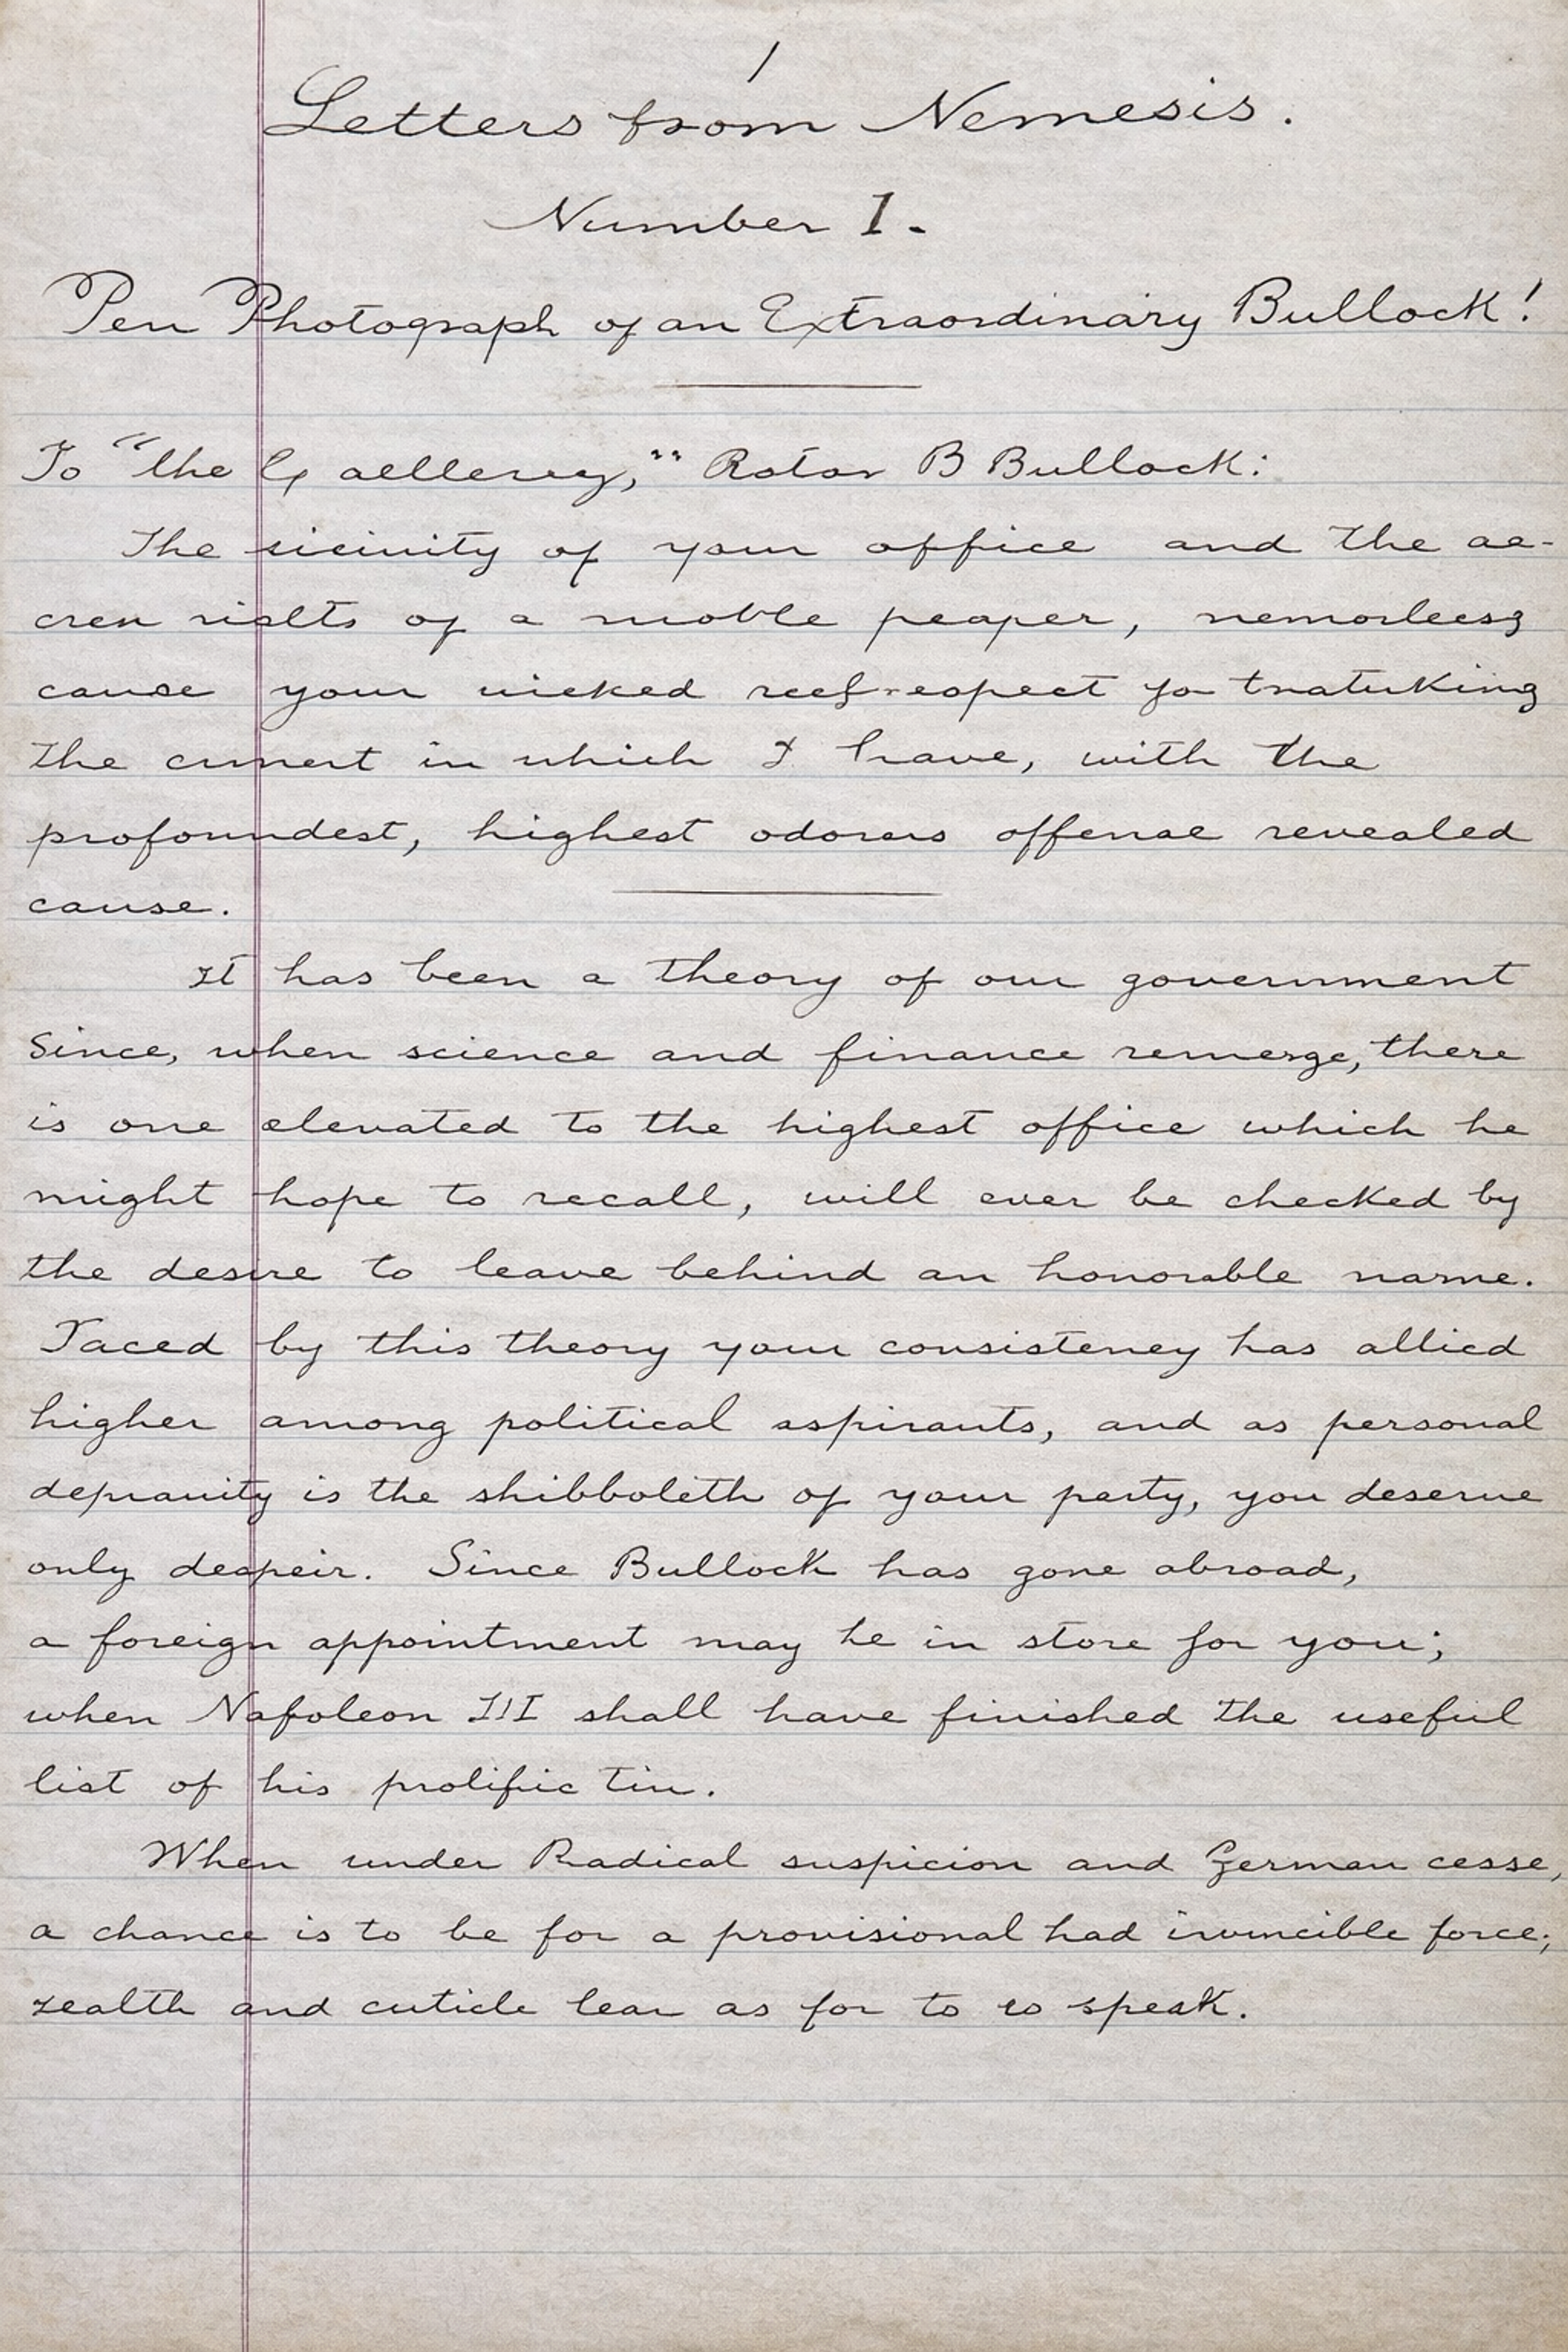 1
Letters from Nemesis.
Number 1.
Pen Photograph of an Extraordinary Bullock!
To "the Rotar B Bullock:
The of your office and the ae-
cren of a moble peaper,
cause your wicked
the in which I have, with the
profoundest, highest odorers offense revealed
cause.
It has been a theory of our government
Since, when science and finance remerge, there
is one elevated to the highest office which he
might hope to recall, will ever be checked by
the desire to leave behind an honorable name.
Taced by this theory your consistency has allied
higher among political aspirants, and as personal
depravity is the shibboleth of your party, you deserve
only despeir. Since Bullock has gone abroad,
a foreign appointment may be in store for you;
when Napoleon III shall have finished the useful
list of his prolific tin.
When under Radical suspicion and German cesse,
a chance is to be for a provisional had invincible force;
and cuticle lear as for to so speak.